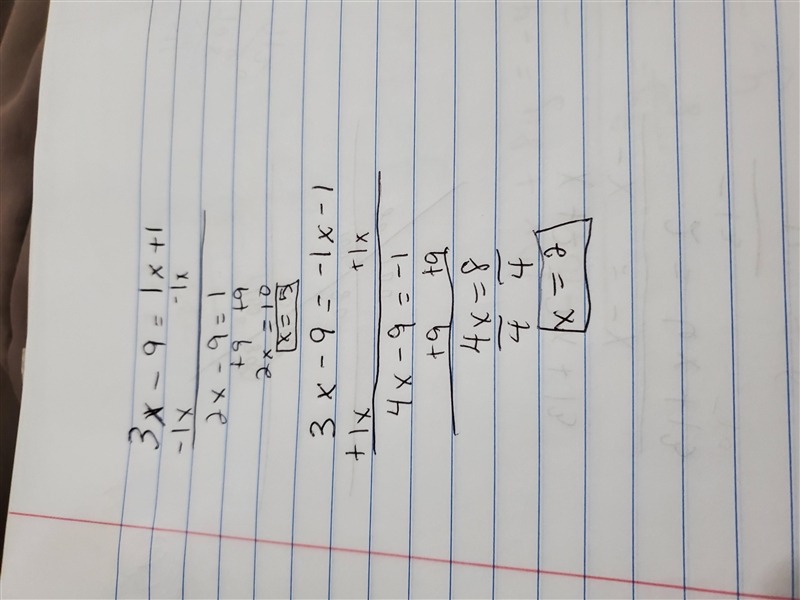 3x - 9 = 1x + 1
-1x -1x
2x - 9 = 1
+9 +9
2x = 10
x = 5
3x - 9 = -1x - 1
+1x +1x
4x - 9 = -1
+9 +9
4x = 8
4 4
x = 2